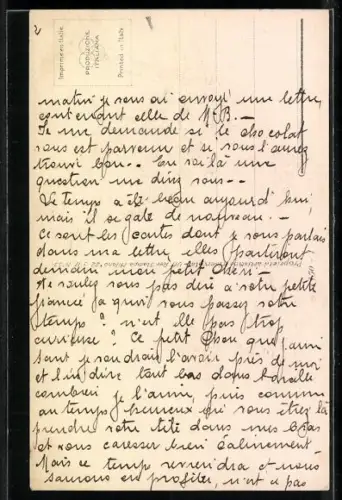 2
Imprimé en Italie
PRODUZIONE
ITALIANA
Printed in Italy
matin je vous ai envoyé une lettre,
contenant celle de M. B. —
Je me demande si le chocolat
vous est parvenu et si vous l'avez
trouvé bon - - En voilà une
question me direz vous - -
Le temps a été beau aujourd'hui,
mais il se gate de nouveau. —
Ce sont les cartes dont je vous parlais
dans ma lettre, elles partiront
demain mon petit Chéri -
Ne voulez vous pas dire à votre petite
fiancée à quoi vous passez votre
temps? n'est elle pas trop
curieuse? Ce petit Chou que j'aimi
sant je voudrais l'avoir près de moi
et lui dire tout bas dans l'oreille
combien je l'aime, puis comme
au temps heureux où vous étiez là
prendre votre tête dans mes bras
et vous caresser bien calinement -
Mais ce temps reviendra et nous
saurons en profiter, n'est ce pas